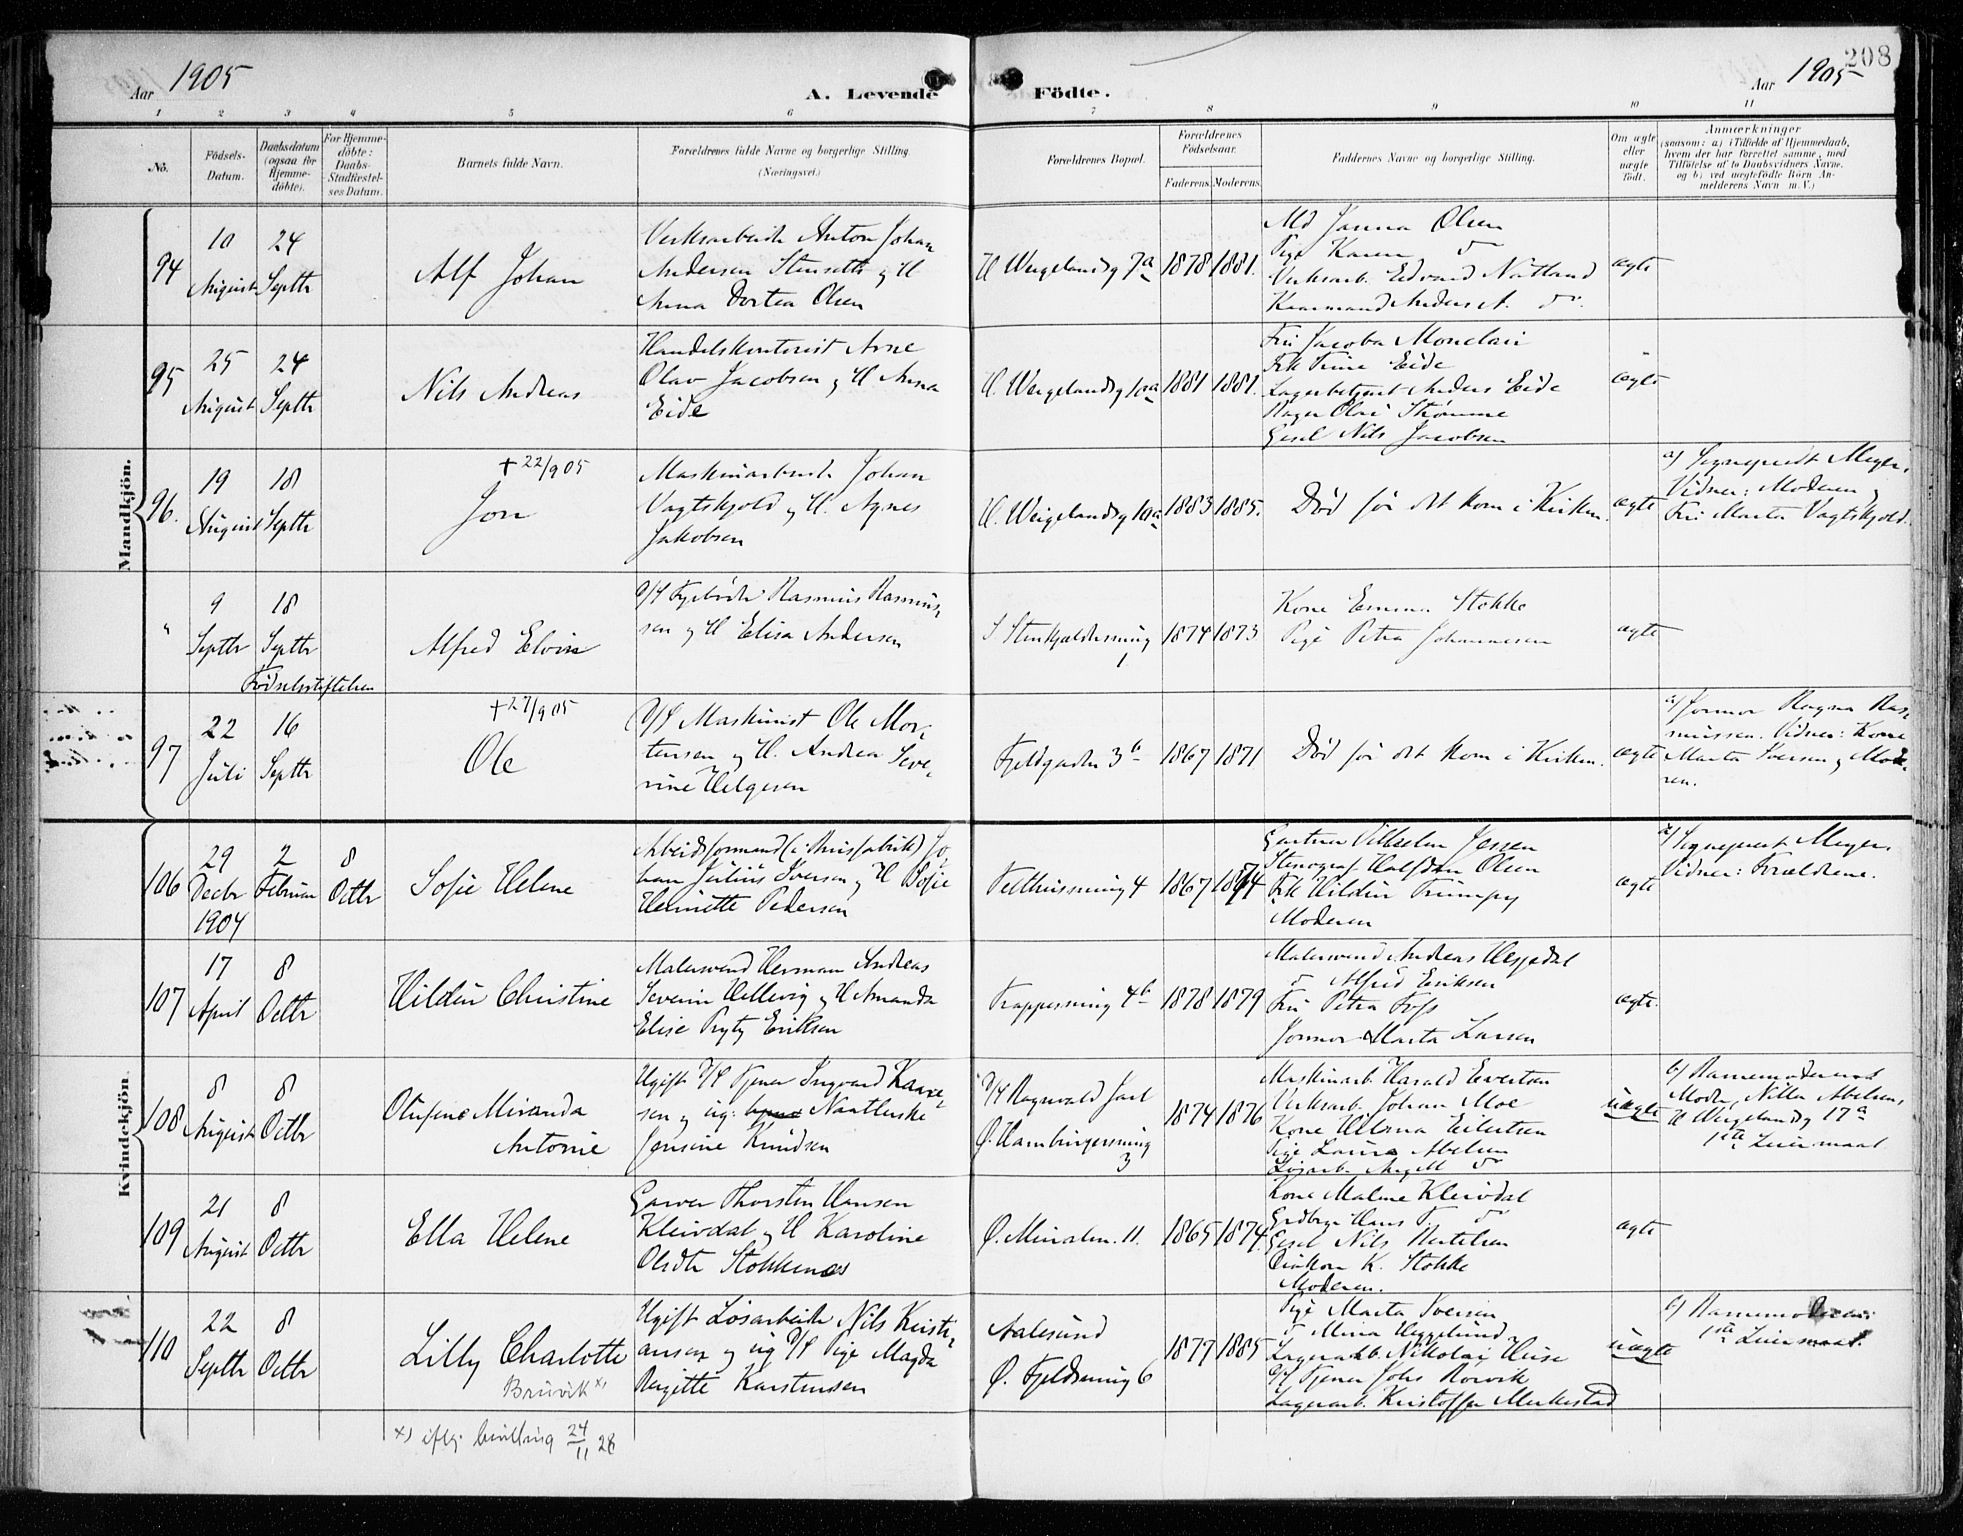 208
Aar 1905
A. Levende Födte.
Aar 1905
1 2 3 4 5 6 7 8 9 10 11
No.
Födsels-
Datum.
Daabsdatum
(ogsaa for
Hjemme-
döbte).
For Hjemme-
döbte:
Daabs-
Stadfæstel-
ses Datum.
Barnets fulde Navn.
Forældrenes fulde Navne og borgerlige Stilling.
(Næringsvei.)
Forældrenes Bopæl.
Forældrenes
Födselsaar.
Faderens Moderens
Faddernes Navne og borgerlige Stilling.
Om ægte
eller
uægte
födt.
Anmærkninger
(saasom: a) i Tilfælde af Hjemmedaab,
hvem der har forrettet samme, med
Tilföielse af to Daabsvidners Navne.
og b) ved uægtefödte Börn An-
melderens Navn m. V.)
Mandkjön.
94
10
August
24
Septbr
Alf Johan
Verksarbeide Anton Johan
Andersen Stensett og H
Anna Dortea Olsen
H Wergelandsg 7a
1878 1881.
Md Janna Olsen
Pige Karen do
Verksarb. Edvard Nätland
Anders A. do.
ægte
95
25
August
24
Septbr
Nils Andreas
Handelskontorist Arne
Olav Jacobsen og H Anna
Eide
H. Wergelandsg 10a
1881 1881.
Fru Jacoba Monclair
Frk Trine Eide
Lagerbetjent Anders Eide
Bager Olai Strømme
Gesel Nils Jacobsen
ægte
96.
19
August
18
Septbr
+ 22/9 05
Jon
Maskinarbeide Johan
Vagtskjold og H. Agnes
Jakobsen
H. Wergelandsg 10a
1883 1885.
Død før det kom i Kirken.
ægte
a) Sognepræst Meyer.
Vidner: Moderen og
Fru Marta Vagtskjold.
"
9
Septbr
18
Septbr
Fødselsstiftelsen
Alfred Elvin
D/S Fyrbøde Rasmus Rasmus-
sen og H Elisa Andersen
S Stenkjeldersmug
1
1874 1873
Kone Emma Stokke
Pige Petra Johannesen
ægte
97
22
Juli
16
Septbr
+ 27/9 05
Ole
D/S Maskinist Ole Mor-
tensen og H. Andrea Seve-
rine Helgesen
Fjeldgaden 3b
1867 1871
Død før det kom i Kirken.
ægte
a) Jormor Ragna Ras-
mussen. Vidner: Kone
Marta Iversen og Mode-
ren.
Kvindekjön.
106
29
Decbr
1904
2
Februar
8
Octbr
Sofie Helene
Arbeidsformand (i Prisfabrik) Jo-
han Julius Iversen og H Sofie
Henriette Pedersen
Felthussmug 4
1867 1874
Gartner Vilhelm Jessen
Stenograf Halfdan Olsen
Frk Hildur Trümpy
Moderen
ægte
a) Sognepræst Meyer.
Vidner: Forældrene.
107
17
April
8
Octbr
Hildur Christine
Malersvend Herman Andreas
Severin Hellevig og H Amanda
Elise Pryty Eriksen
Trappesmug 4b
1878 1879
Malersvend Andreas Hesjedal
do Alfred Eriksen
Fru Petra Foss
Jormor Marta Larsen
ægte.
108
8
August
8
Octbr
Olufine Miranda
Antonie
Ugift D/S Tjener Ingvard Kaare-
sen og ug: Naatlerske
Jensine Knudsen
D/S Ragnvald Jarl
Ø. Hamburgersmug
3
1874 1876
Maskinarb. Harald Evertsen
Verksarb. Johan Moe
Kone Helena Eilertsen
Pige Laura Abelsen
Løsarb. Angell do
uægte
b) Barnemoderens
Moder, Nilla Abelsen,
H Wergelandsg 17a
1ste Leiermaal
109
21
August
8
Octbr
Ella Helene
Garver Thorsten Hansen
Kleivdal og H Karoline
Oldtr Stokkenæs
Ø. Muralm. 11.
1865 1874.
Kone Malene Kleivdal
Hans T. do
Gesel Nils Bertelsen
Diakon K. Stokke
Moderen.
ægte
110
22
Septbr
8
Octbr
Lilly Charlotte
Bruvik x)
Ugift Løsarbeide Nils Kristi-
ansen og ug D/S Pige Magda
Birgitte Karstensen
Aalesund
Ø. Fjeldsmug 6
1877 1885
Pige Marta Iversen
do Mina Heggelund
Lagerarb. Nikolai Huse
D/S Tjener Johs Rorvik
Lagerarb. Kristoffer Merkestad
uægte
b) Barnemoderen:
1ste Leiermaal.
x) iflg. bevilling 24/11 28